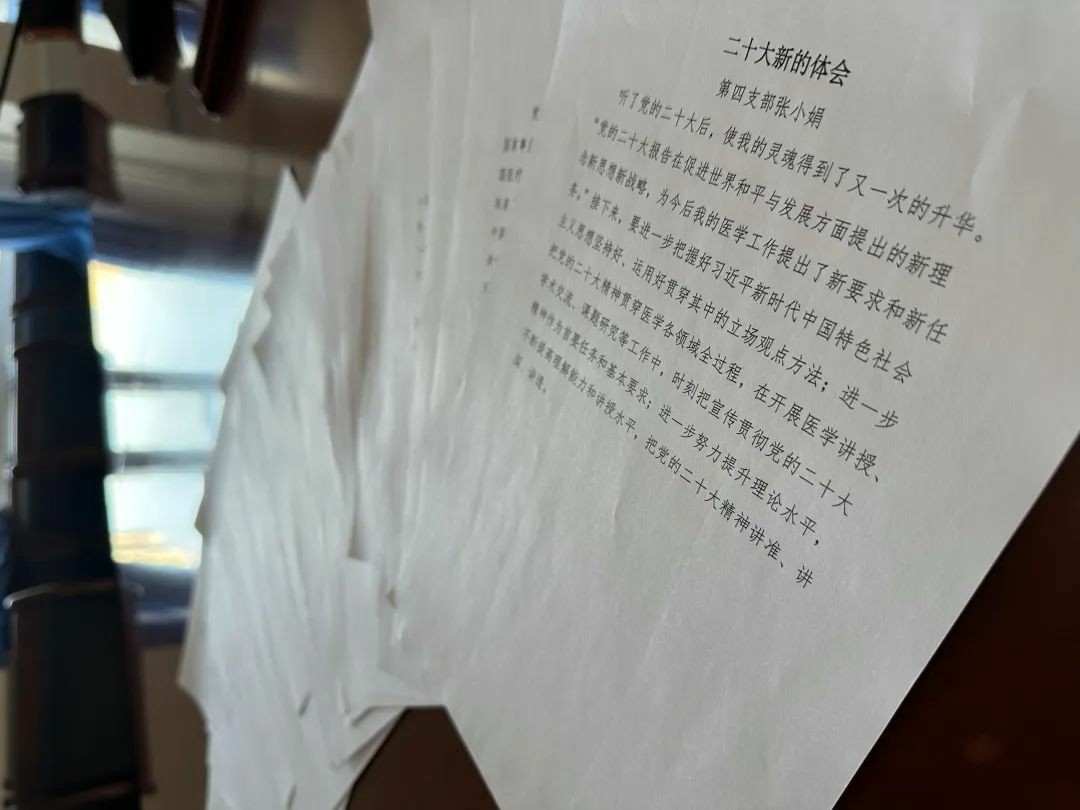 二十大新的体会
第四支部张小娟
听了党的二十大后，使我的灵魂得到了又一次的升华。
“党的二十大报告在促进世界和平与发展方面提出的新理
念新思想新战略，为今后我的医学工作提出了新要求和新任
务。”接下来，要进一步把握好习近平新时代中国特色社会
主义思想坚持好、运用好贯穿其中的立场观点方法；进一步
把党的二十大精神贯穿医学各领域全过程，在开展医学讲授、
学术交流、课题研究等工作中，时刻把宣传贯彻党的二十大
精神作为首要任务和基本要求；进一步努力提升理论水平，
不断提高理解能力和讲授水平，把党的二十大精神讲准、讲
深、讲透。